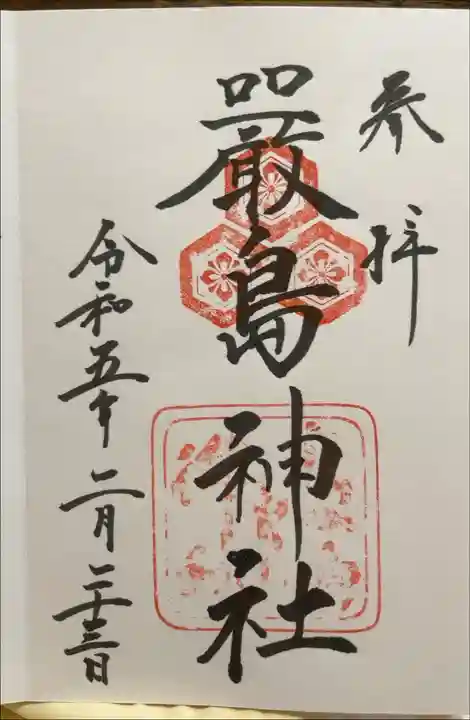 参拝
嚴島神社
令和五年二月二十三日